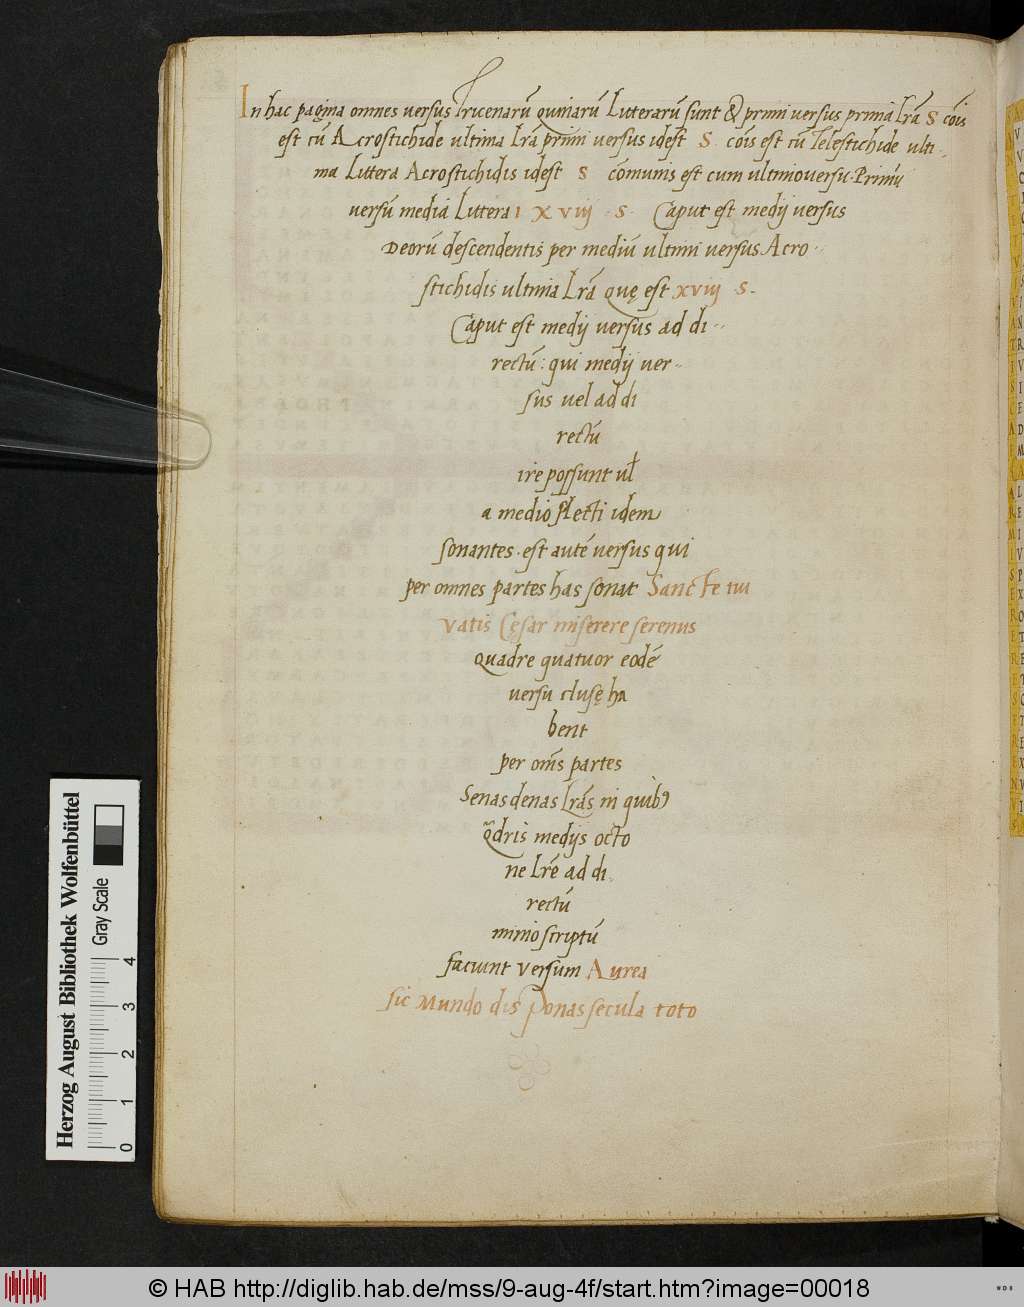 In hac pagina omnes versus Tricenarū quinarū Litterarū sunt & primi versus prima lrā S cōis
est cū Acrostichide ultima lrā primi versus idest S cōis est cū Telestichide ulti..
ma littera Acrostichidis idest S cōmunis est cum ultimo versu. Primiȷ
versū media Littera i xviij . S . Caput est medij versus
Deorū descendentis per mediū ultimi versus Acro..
stichidis ultima Lrā quę est xviij . S .
Caput est medij versus ad di..
rectū: qui medij ver..
sus uel ad di
rectū
ire possunt ul̄
a medio flecti idem
sonantes. est autē versus qui
per omnes partes has sonat Sancte tui
vatis Cęsar miserere serenus
Quadre quatuor eodē
versu clusę ha
bent
per om̄s partes
Senas denas lrās in quibꝯ
q̄dris medijs octo
ne lrē ad di.
rectū
minio scriptū
faciunt versum Aurea
sic Mundo disponas secula toto
Herzog August Bibliothek Wolfenbüttel
Gray Scale
0 1 2 3 4
© HAB http://diglib.hab.de/mss/9-aug-4f/start.htm?image=00018